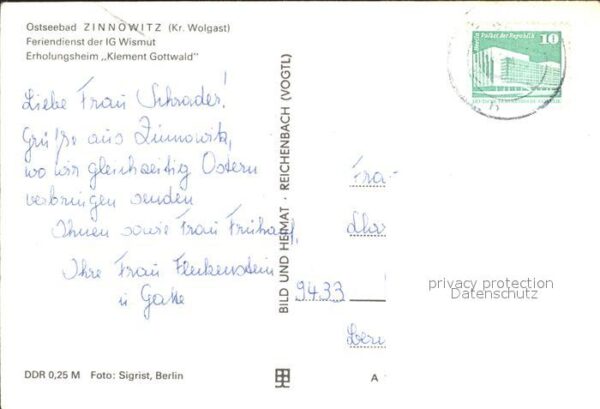 Ostseebad ZINNOWITZ (Kr. Wolgast)
Feriendienst der IG Wismut
Erholungsheim „Klement Gottwald"
Liebe Frau Schrader!
Grüße aus Zinnowitz,
wo wir gleichzeitig Ostern
verbringen senden
Ihnen sowie Frau
Ihre Frau Fleckenstein
u Gatte
DDR 0,25 M Foto: Sigrist, Berlin
BILD UND HEIMAT · REICHENBACH (VOGTL)
Palast der Republik
10
Fra
9433
A
privacy protection
Datenschutz